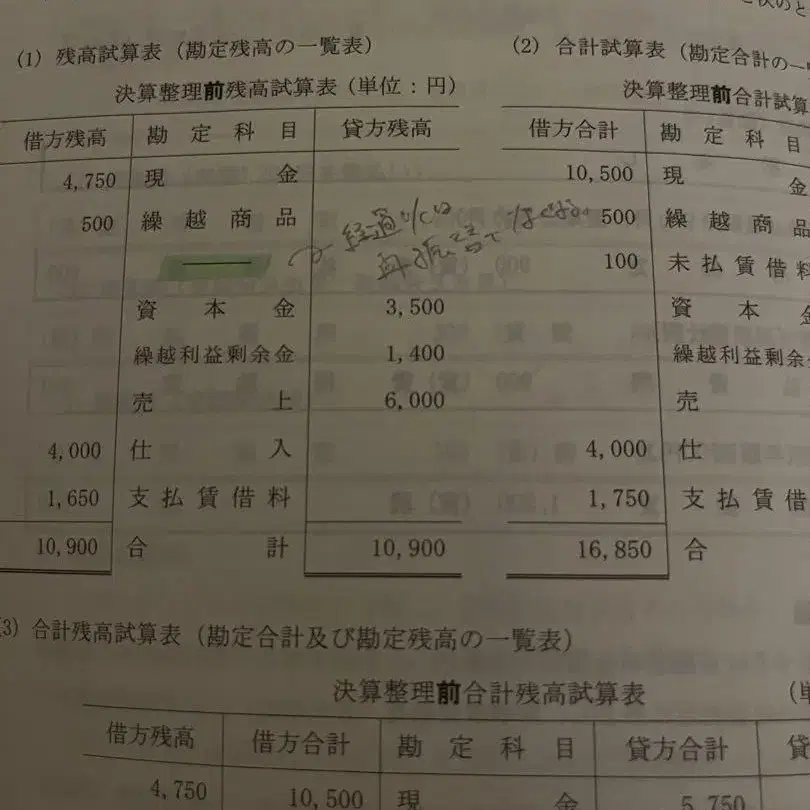 (1) 残高試算表（勘定残高の一覧表）
決算整理前残高試算表（単位：円）
借方残高 勘定科目 貸方残高
4,750 現金
500 繰越商品
資本金 3,500
繰越利益剰余金 1,400
売上 6,000
4,000 仕入
1,650 支払賃借料
10,900 合計 10,900
経過
再振替
(2) 合計試算表（勘定合計の一
決算整理前合計試算
借方合計 勘定科目
10,500 現金
500 繰越商品
100 未払賃借料
資本金
繰越利益剰余
売
4,000 仕
1,750 支払賃借
16,850 合
3) 合計残高試算表（勘定合計及び勘定残高の一覧表）
決算整理前合計残高試算表 （単
借方残高 借方合計 勘定科目 貸方合計 貸
4,750 10,500 現金 5,750